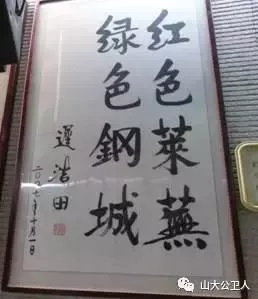 红色莱蕪
绿色鋼城
遲浩田
二〇〇七年十月一日
山大公卫人